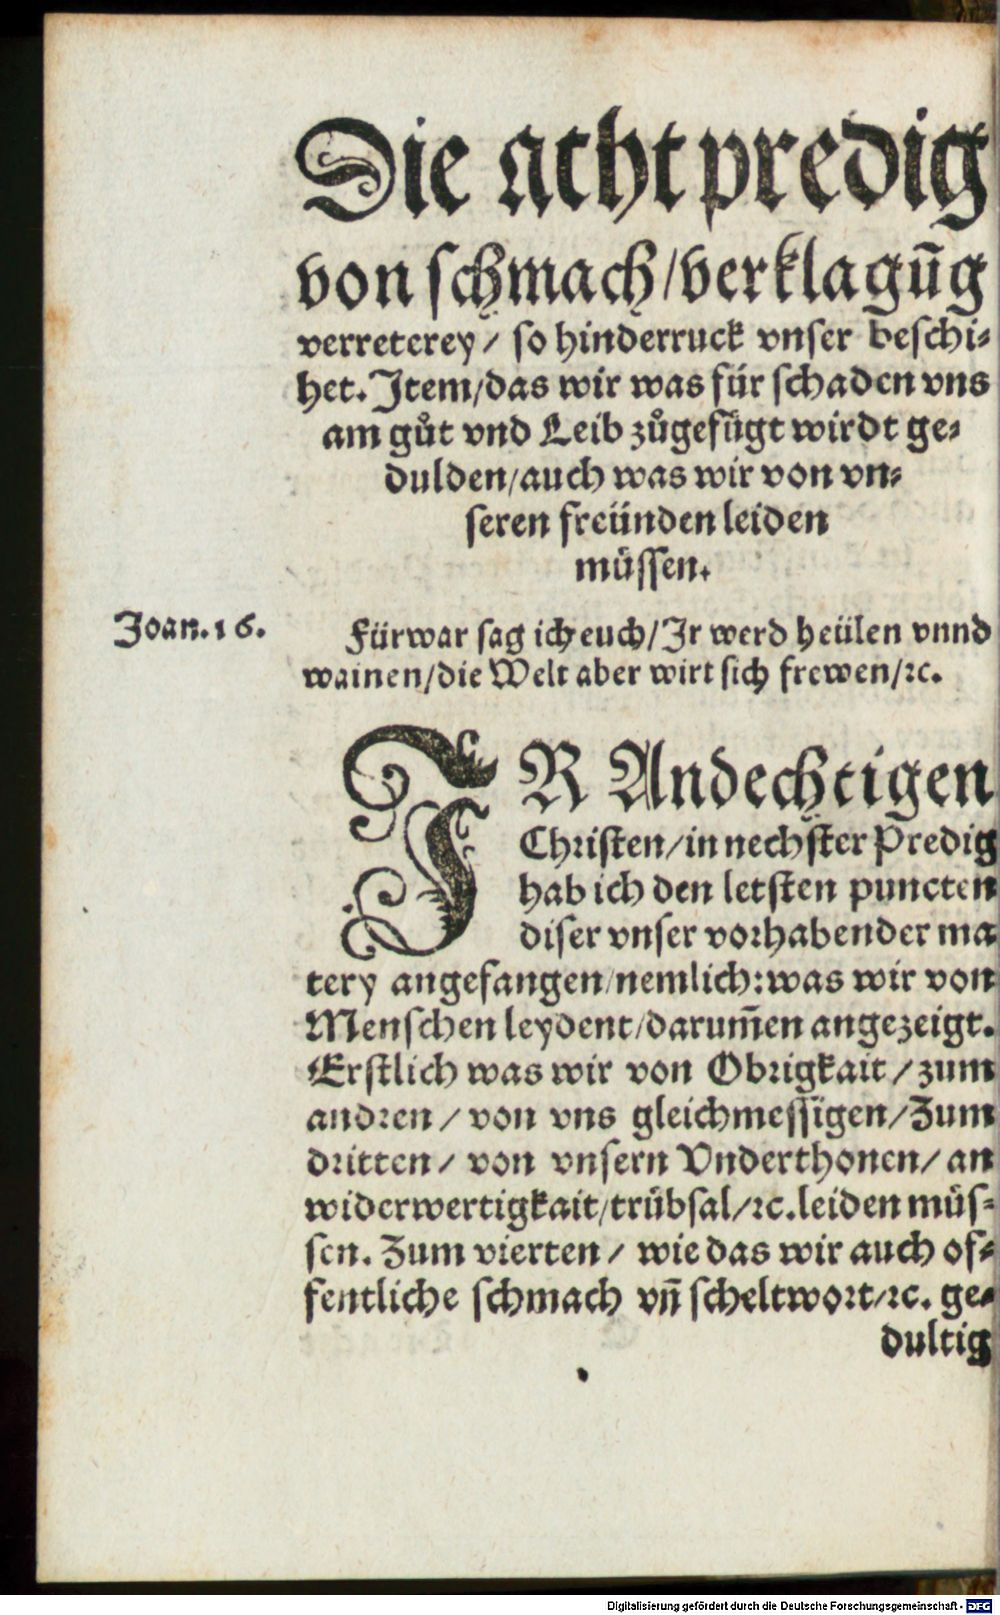 Die acht predig
von schmach/verklagūg
verreterey/ so hinderruck vnser beschi-
het. Item/das wir was für schaden vns
am gůt vnd Leib zůgefügt wirdt ge-
dulden/auch was wir von vn-
seren freünden leiden
müssen.
Joan.16.
Fürwar sag ich euch/Ir werd heülen vnnd
wainen/die Welt aber wirt sich frewen/ꝛc.
IR Andechtigen
Christen/in nechster Predig
hab ich den letsten puncten
diser vnser vorhabender ma
tery angefangen/nemlich:was wir von
Menschen leydent/darum̄en angezeigt.
Erstlich was wir von Obrigkait/zum
andren/ von vns gleichmessigen/Zum
dritten/ von vnsern Vnderthonen/ an
widerwertigkait/trübsal/ꝛc.leiden müs-
sen. Zum vierten/ wie das wir auch of-
fentliche schmach vn̄ scheltwort/ꝛc. ge-
dultig
Digitalisierung gefördert durch die Deutsche Forschungsgemeinschaft - DFG